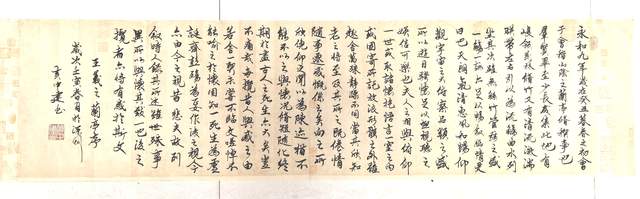 永和九年歲在癸丑暮春之初會
于會稽山陰之蘭亭脩禊事也
群賢畢至少長咸集此地有
峻領茂林脩竹又有清流激湍
映帶左右引以為流觴曲水列
坐其次雖無絲竹管弦之盛
一觴一詠亦足以暢敘幽情是
日也天朗氣清惠風和暢仰
觀宇宙之大俯察品類之盛
所以遊目騁懷足以極視聽之
娛信可樂也夫人之相與俯仰
一世或取諸懷抱悟言一室之內
或因寄所託放浪形骸之外雖
趣舍萬殊靜躁不同當其欣
老之將至及其所之既惓情
隨事遷感慨係之矣向之所
欣俛仰之間以為陳迹猶不
能不以之興懷況脩短隨化終
期於盡古人云死生亦大矣豈
不痛哉每攬昔人興感之由
若合一契未嘗不臨文嗟悼不
能喻之於懷固知一死生為虛
誕齊彭殤為妄作後之視今
亦由今之視昔悲夫故列
敘時人錄其所述雖世殊事
異所以興懷其致一也後之
攬者亦將有感於斯文
王羲之蘭亭序
歲次